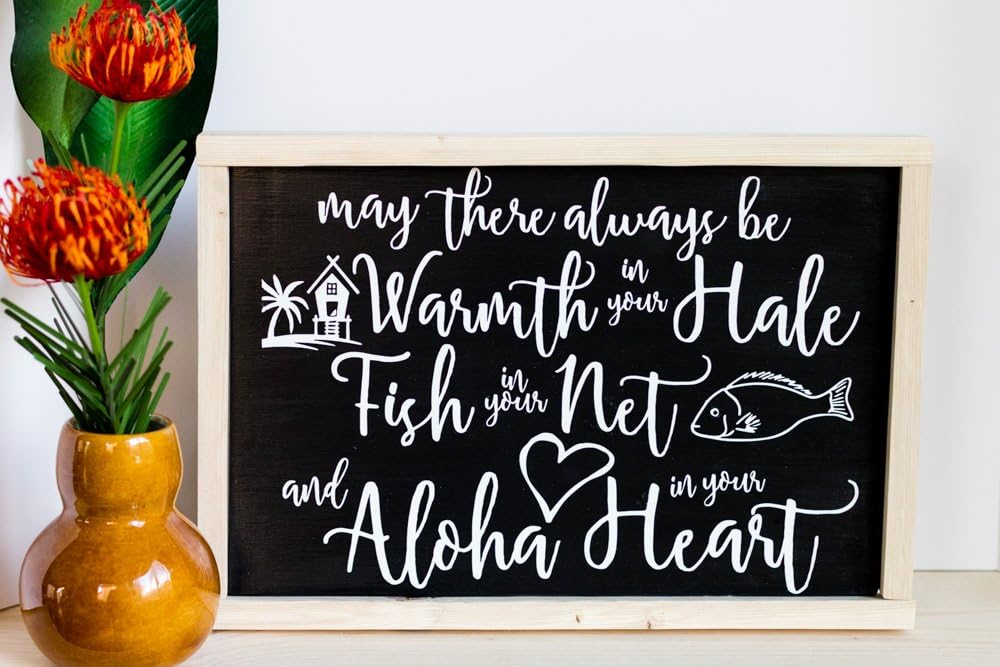 may there always be
Warmth in your Hale
Fish in your Net
and Aloha in your Heart